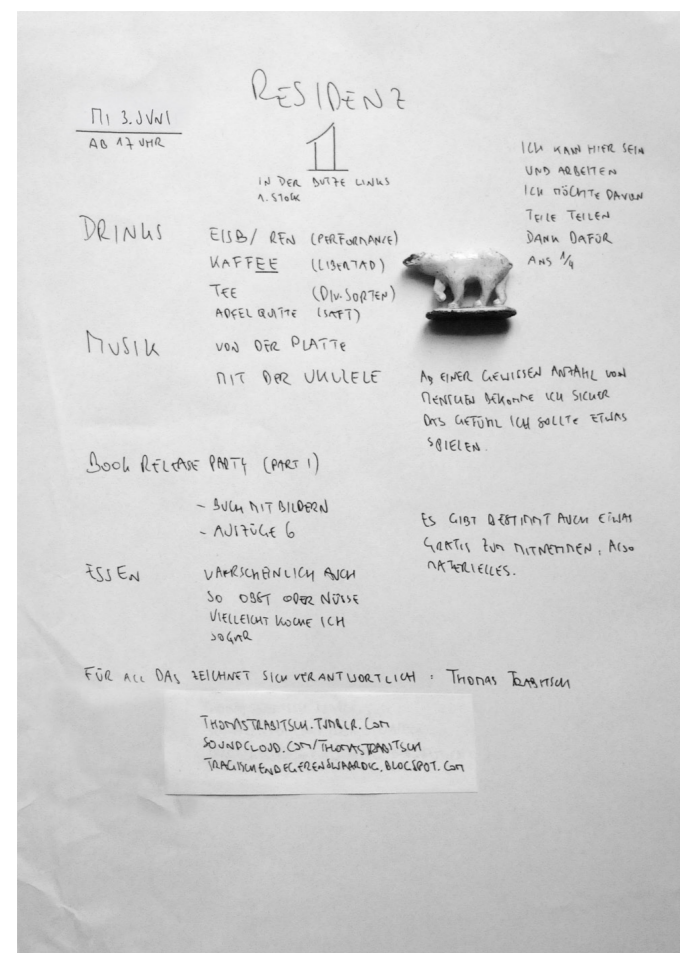 RESIDENZ
MI 3. JUNI
AB 17 UHR
1
IN DER BUTZE LINKS
1. STOCK
ICH KANN HIER SEIN
UND ARBEITEN
ICH MÖCHTE DAVON
TEILE TEILEN
DANK DAFÜR
ANS 1/4
DRINKS EISB/ REN (PERFORMANCE)
KAFFEE (LIBERTAD)
TEE (DIV. SORTEN)
APFEL QUITTE (SAFT)
MUSIK VON DER PLATTE
MIT DER UKULELE
AB EINER GEWISSEN ANZAHL VON
MENSCHEN BEKOMME ICH SICHER
DAS GEFÜHL ICH SOLLTE ETWAS
SPIELEN.
BOOK RELEASE PARTY (PART 1)
- BUCH MIT BILDERN
- AUSZÜGE 6
ES GIBT BESTIMMT AUCH ETWAS
GRATIS ZUM MITNEHMEN, ALSO
MATERIELLES.
ESSEN WAHRSCHEINLICH AUCH
SO OBST ODER NÜSSE
VIELLEICHT KOCHE ICH
SOGAR
FÜR ALL DAS ZEICHNET SICH VERANTWORTLICH : THOMAS TRABITSCH
THOMASTRABITSCH.TUMBLR.COM
SOUNDCLOUD.COM/THOMASTRABITSCH